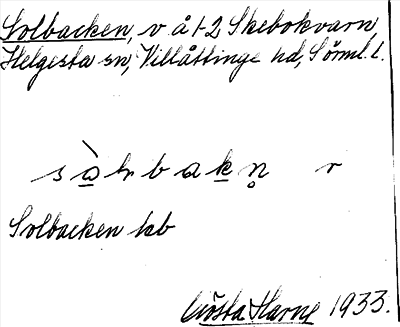 Solbacken, v å t 2 Skebokvarn,
Helgesta sn, Villåttinge hd, Sörml. l.
sàlbakn̥ r
Solbacken kb
Gösta Harne 1933.